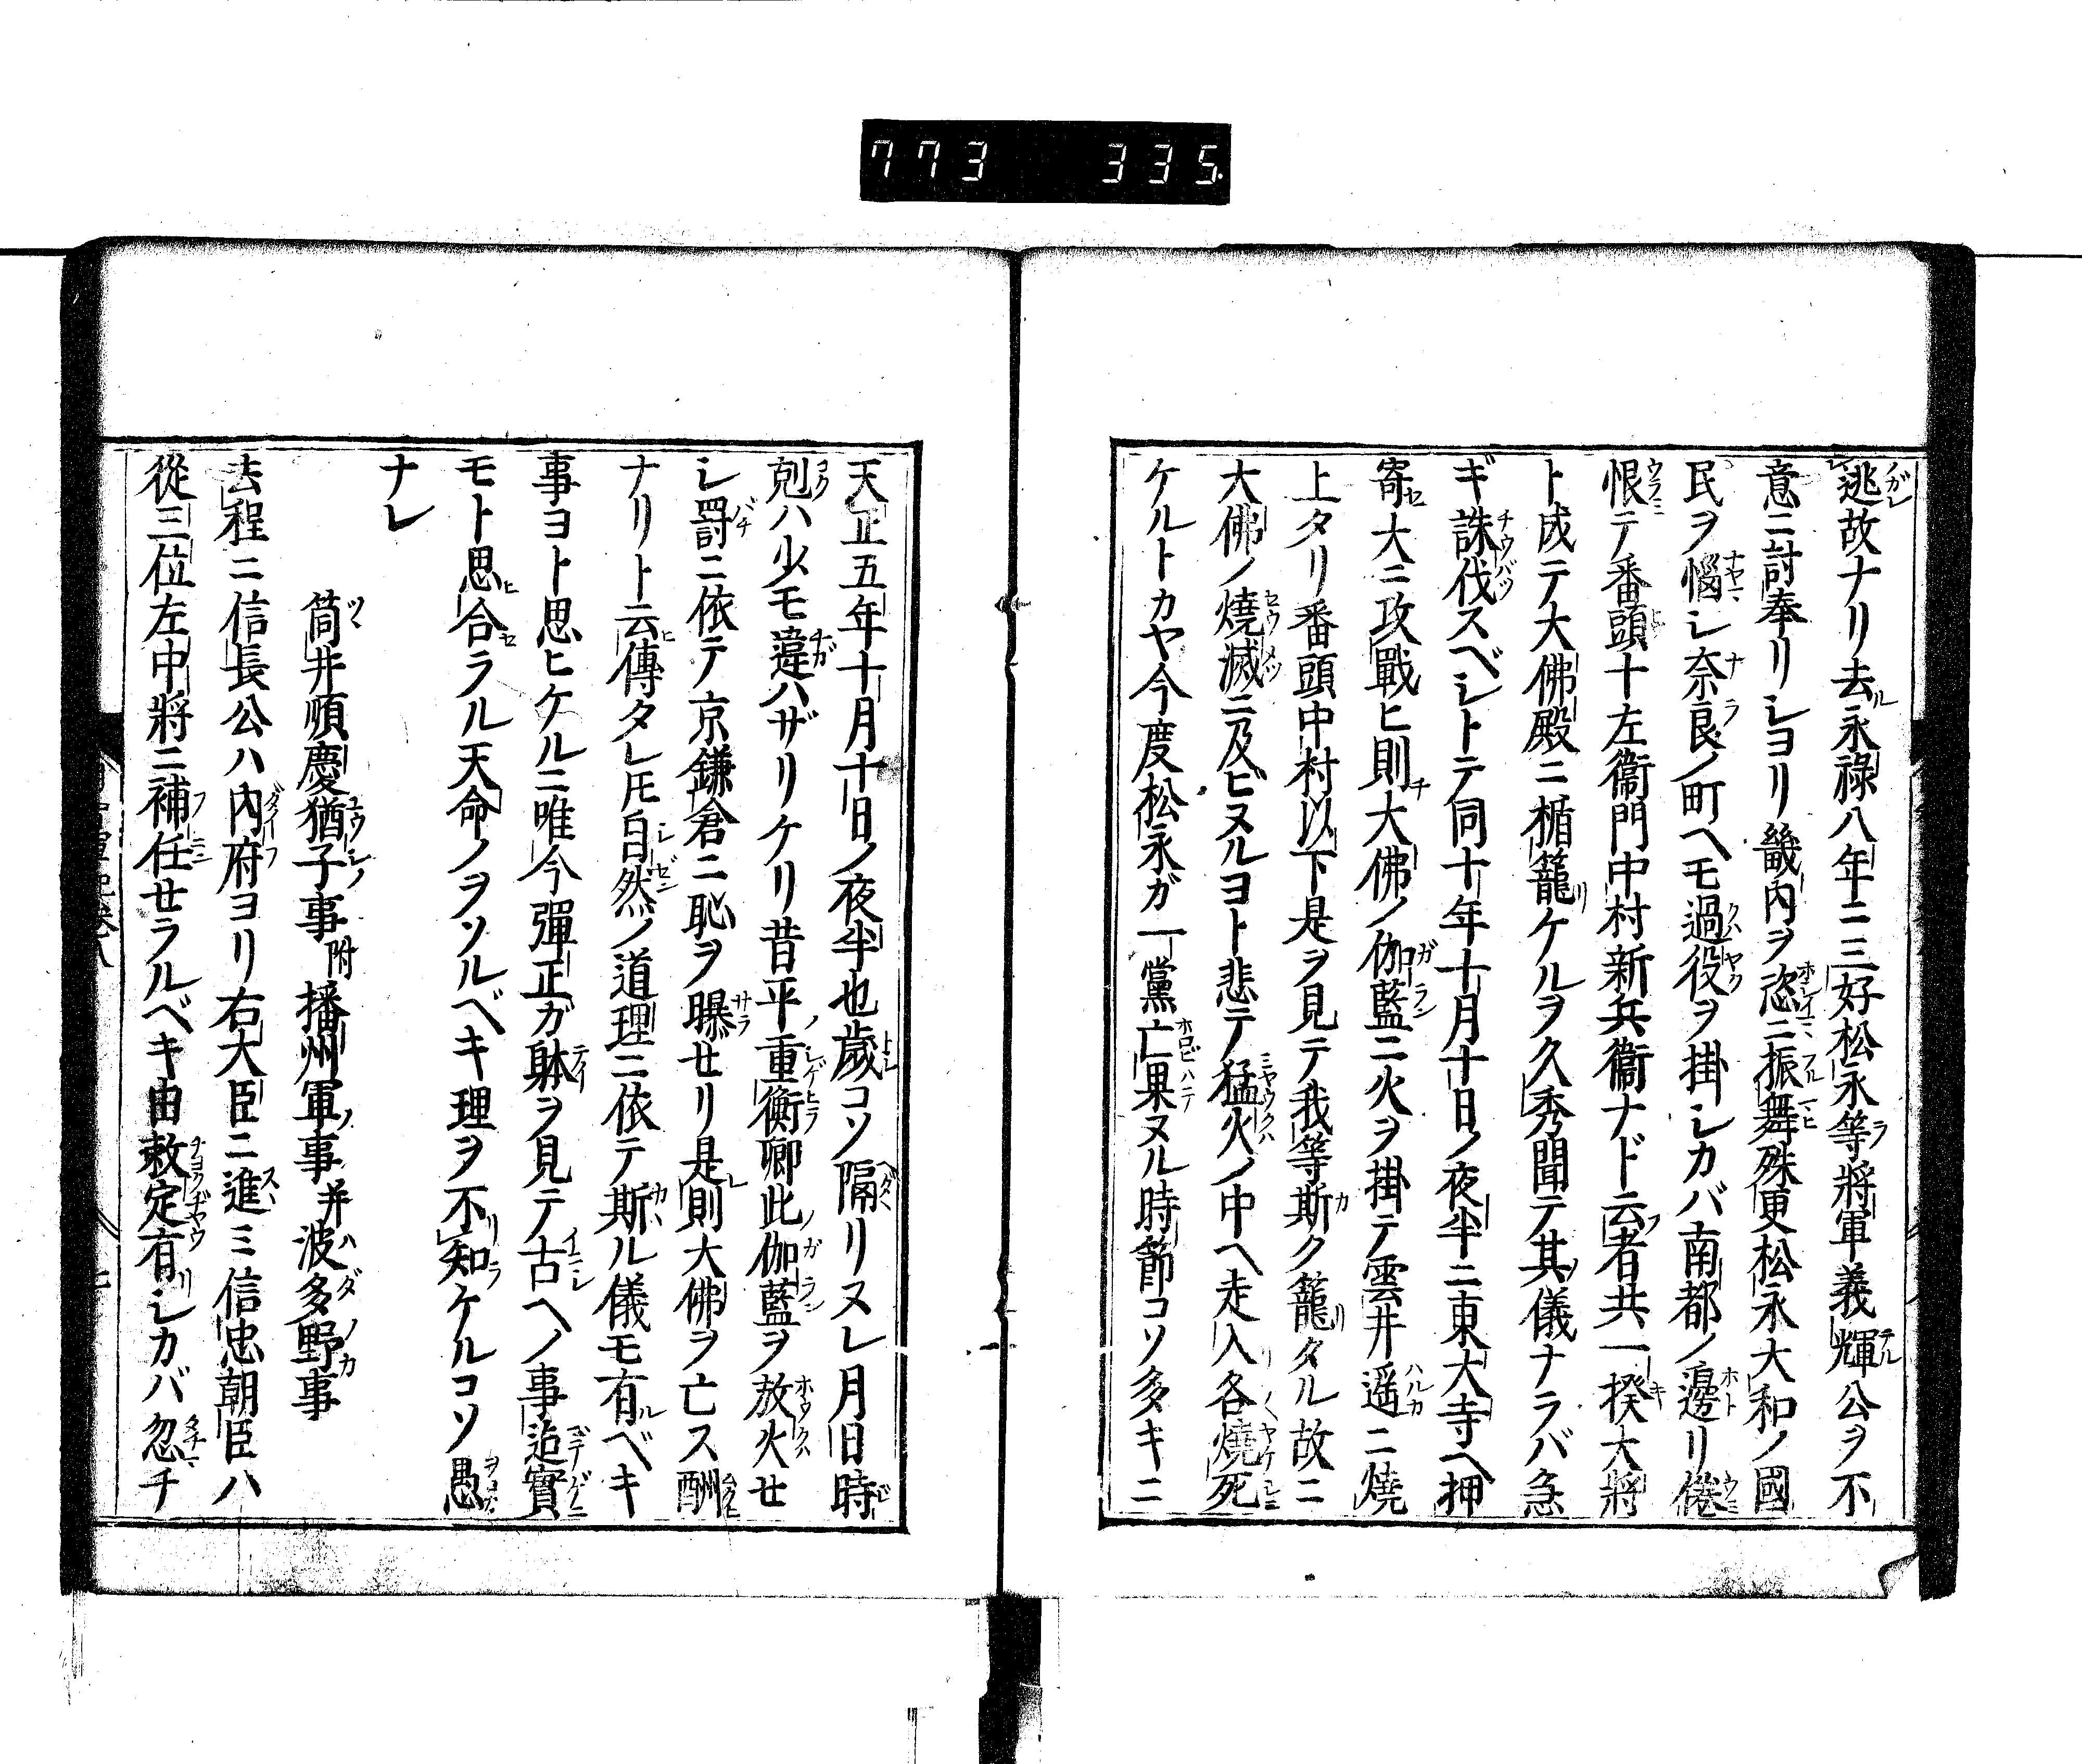 773 335.
逃故ナリ去永祿八年ニ三好松永等將軍義輝公ヲ不
意ニ討奉リシヨリ畿内ヲ恣ニ振舞殊更松永大和ノ國
民ヲ惱シ奈良ノ町ヘモ過役ヲ掛シカバ南都ノ邊リ倦
恨テ番頭十左衞門中村新兵衞ナド云者共一揆大將
ト成テ大佛殿ニ楯籠ケルヲ久秀聞テ其儀ナラバ急
ギ誅伐スベシトテ同十年十月十日ノ夜半ニ東大寺ヘ押
寄大ニ攻戰ヒ則大佛ノ伽藍ニ火ヲ掛テ雲井遥ニ燒
上タリ番頭中村以下是ヲ見テ我等斯ク籠タル故ニ
大佛ノ燒滅ニ及ビヌルヨト悲テ猛火ノ中ヘ走入各燒死
ケルトカヤ今度松永ガ一黨亡果ヌル時節コソ多キニ
天正五年十月十日ノ夜半也歲コソ隔リヌレ月日時
剋ハ少モ違ハザリケリ昔平重衡卿此伽藍ヲ放火せ
シ罸ニ依テ京鎌倉ニ恥ヲ曝せリ是則大佛ヲ亡ス酬
ナリト云傳タレ𪜈自然ノ道理ニ依テ斯ル儀モ有ベキ
事ヨト思ヒケルニ唯今彈正ガ躰ヲ見テ古ヘノ事迄實
モト思合ラル天命ノヲソルベキ理ヲ不知ケルコソ愚
ナレ
筒井順慶猶子事附播州軍事并波多野事
去程ニ信長公ハ内府ヨリ右大臣ニ進ミ信忠朝臣ハ
從三位左中將ニ補任せラルベキ由敕定有シカバ忽チ